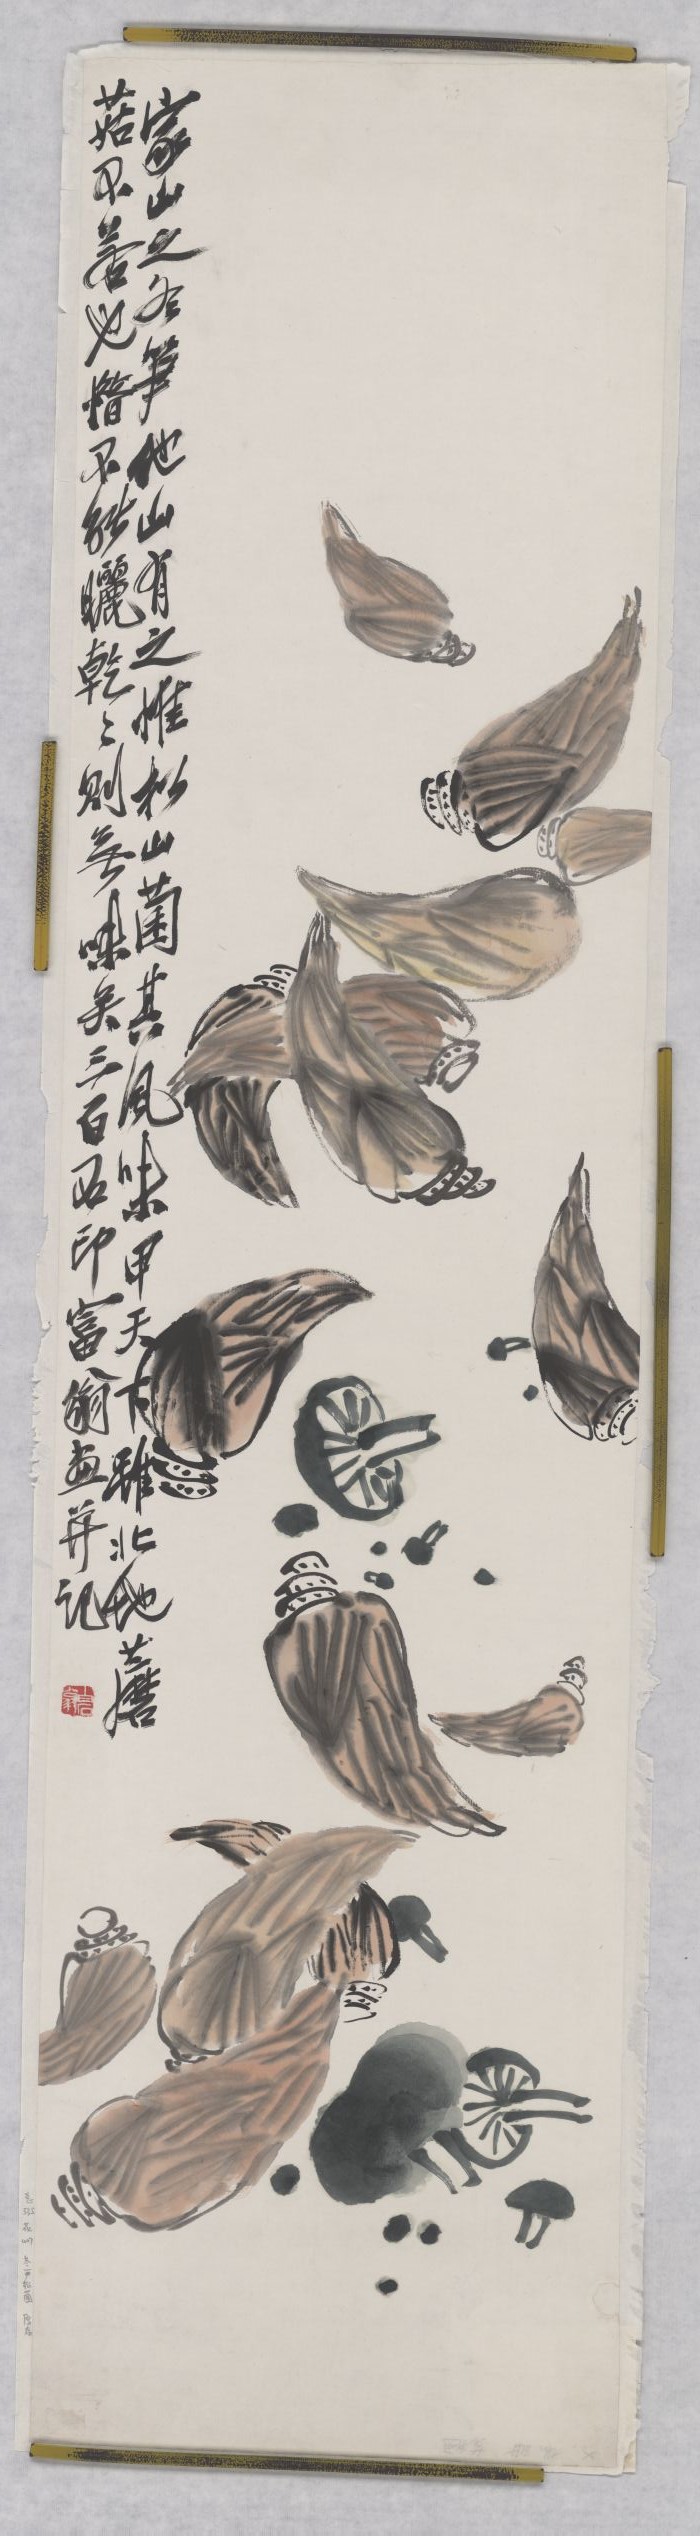 家山之冬笋他山有之惟松山菌其风味甲天下虽北地蘑
菇不若也惜不能曬乾〻则无味矣三百石印富翁画并记